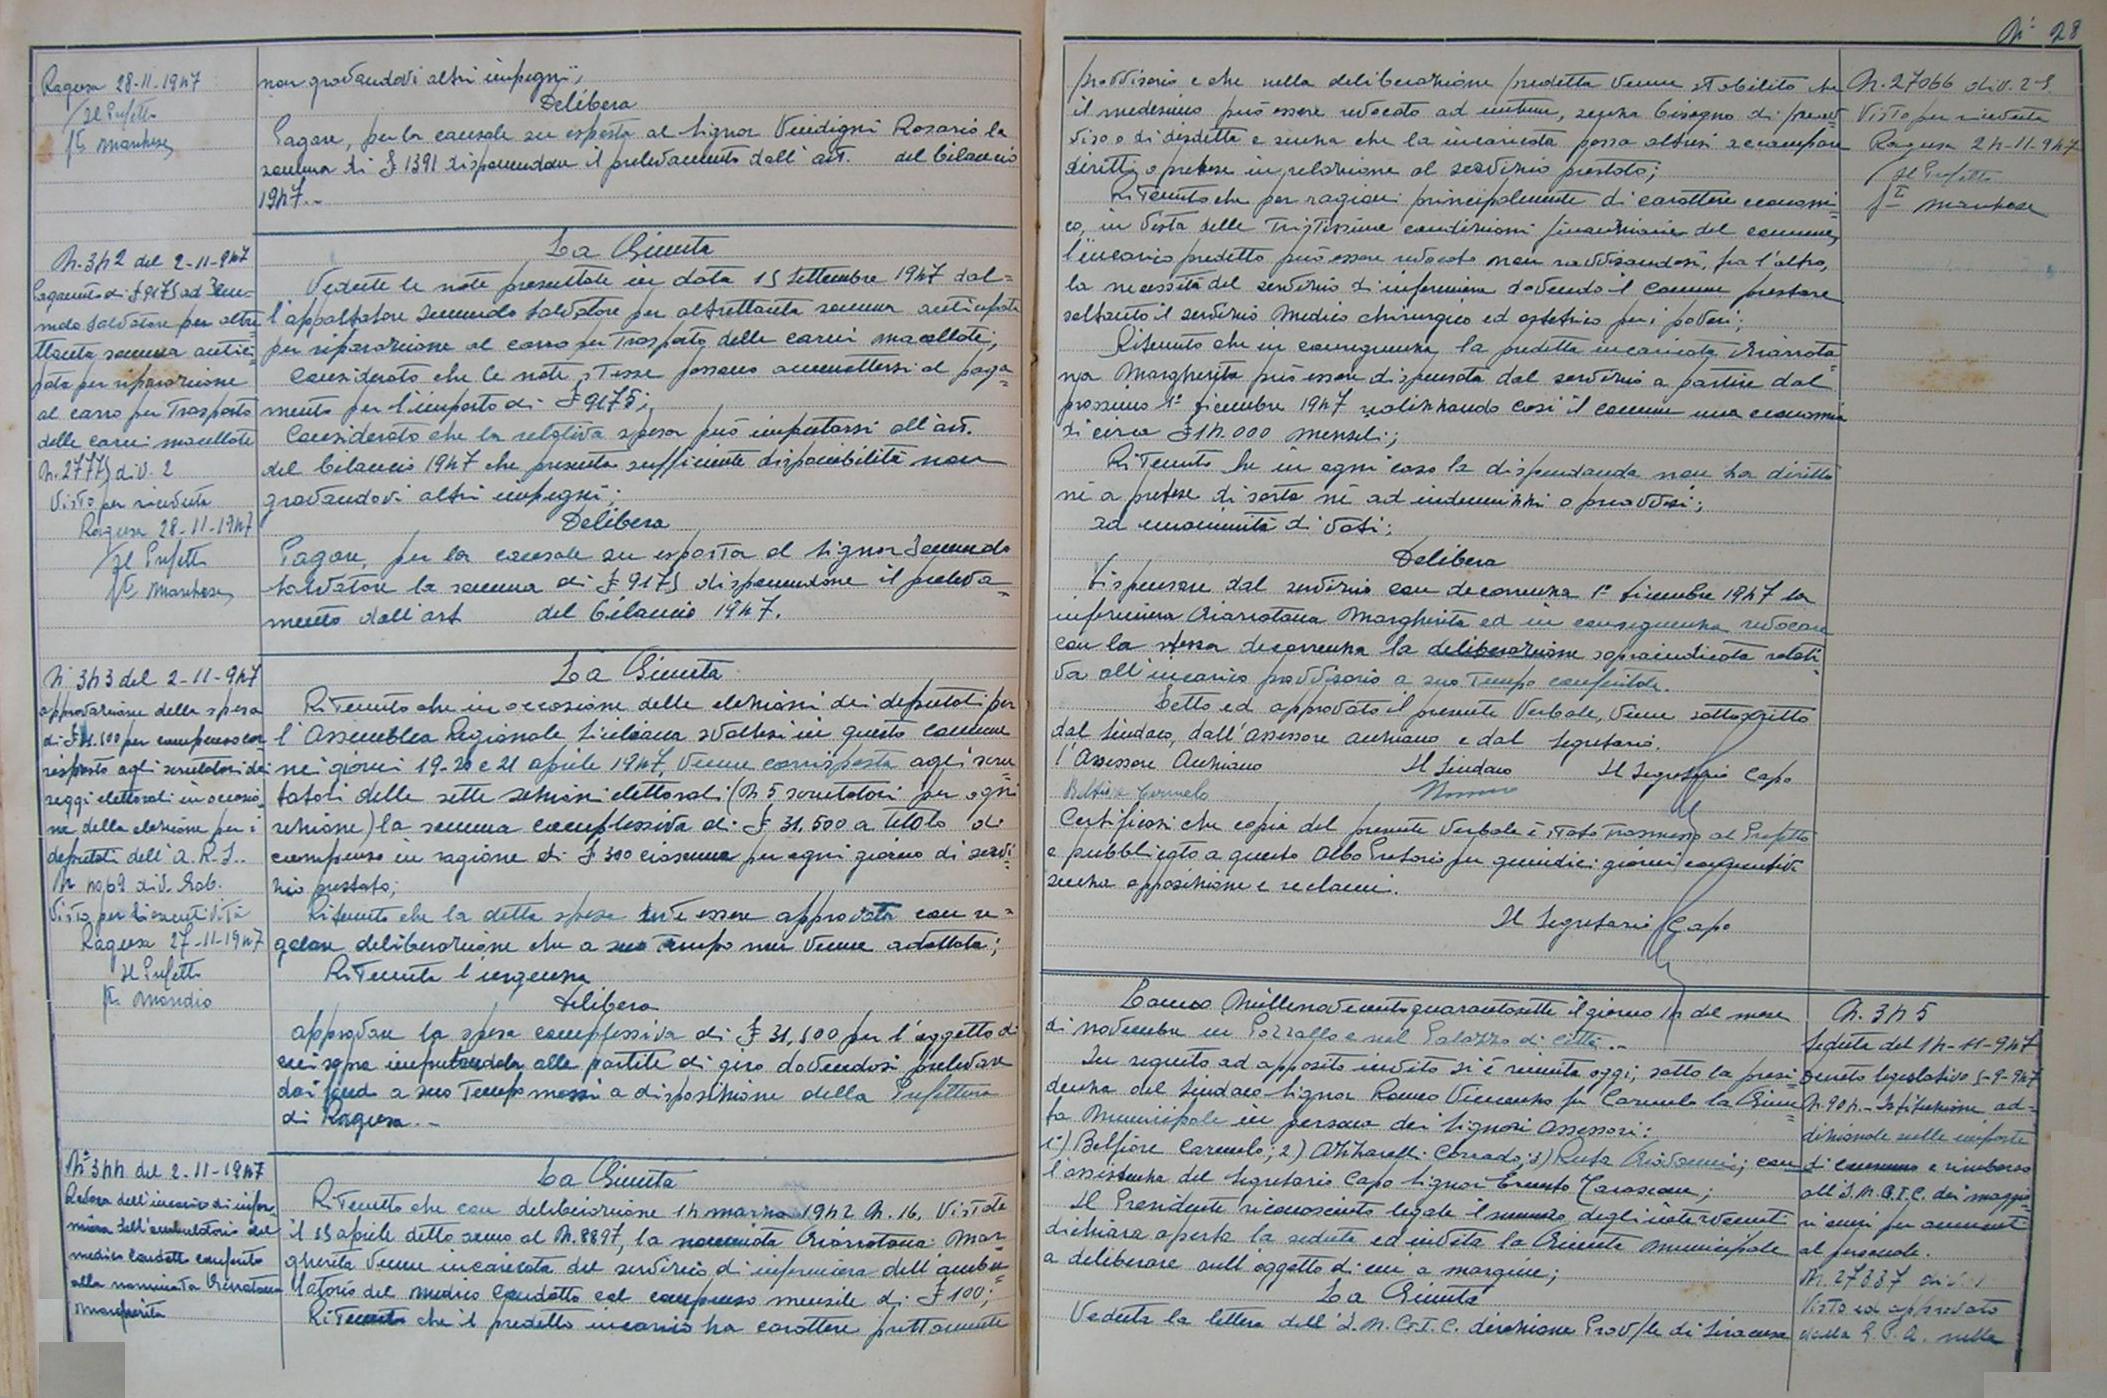 Ragusa 28-11-1947
Il Prefetto
non gravandovi altri impegni;
Delibera
Pagare, per la causale su esposta al Signor Vindigni Rosario la
somma di £ 1391 disponendone il prelevamento dall'art. del bilancio
1947..
N. 342 del 2-11-947
Pagamento di £ 9175 ad
Salvatore per altre
ttanta somma antici
pata per riparazione
al carro per Trasporto
delle carni macellate
N. 27775 div. 2
Visto per ricevuta
Ragusa 28-11-1947
Il Prefetto
La Giunta
Vedute le note presentate in data 15 Settembre 1947 dal=
l'appaltatore Salvatore per altrettanta somma anticipata
per riparazione al carro per Trasporto delle carni macellate;
Considerato che le note stesse possono ammettersi al paga=
mento per l'importo di £ 9175;
Considerato che la relativa spesa può imputarsi all'art.
del bilancio 1947 che presenta sufficiente disponibilità non
gravandovi altri impegni;
Delibera
Pagare, per la causale su esposta al Signor
Salvatore la somma di £ 9175 disponendone il preleva=
mento dall'art del bilancio 1947.
N° 343 del 2-11-947
approvazione della spesa
di £ 31.500 per compenso cor
risposto agli scrutatori dei
seggi elettorali in occasio
ne della elezione per i
deputati dell'A.R.S..
div. Gab.
Visto per l'esecutività
Ragusa 27-11-1947
Il Prefetto
La Giunta
Ritenuto che in occasione delle elezioni dei deputati per
l'Assemblea Regionale Siciliana svoltesi in questo comune
nei giorni 19-20 e 21 aprile 1947, venne corrisposta agli scru=
tatori delle sette sezioni elettorali (N 5 scrutatori per ogni
sezione) la somma complessiva di £ 31.500 a titolo di
compenso in ragione di £ 300 ciascuno per ogni giorno di servi
zio prestato;
Ritenuto che la detta spesa deve essere approvata con re=
golare deliberazione che a suo tempo non venne adottata;
Ritenuta l'urgenza
Delibera
approvare la spesa complessiva di £ 31.500 per l'oggetto di
cui sopra imputandola alle partite di giro dovendosi prelevare
dai fondi a suo Tempo messi a disposizione della Prefettura
di Ragusa..
N° 344 del 2-11-1947
Revoca dell'incarico di infer
miera dell'ambulatorio del
medico condotto conferito
alla nominata Giarratana
Margherita
La Giunta
Ritenuto che con deliberazione 14 marzo 1942 N. 16, Vistata
il 15 aprile detto anno al N. 8897, la nominata Giarratana Mar=
gherita venne incaricata del servizio di infermiera dell'ambu=
latorio del medico condotto col compenso mensile di £ 100;
Ritenuto che il predetto incarico ha carattere prettamente
N° 28
provvisorio e che nella deliberazione predetta venne stabilito che
il medesimo può essere revocato ad nutum, senza bisogno di preav
viso o di disdetta e senza che la incaricata possa altresì accampare
diritti o pretese in relazione al servizio prestato;
Ritenuto che per ragioni principalmente di carattere economi=
co, in vista delle Tristissime condizioni finanziarie del comune,
l'incarico predetto può essere revocato non ravvisandosi, fra l'altro,
la necessità del servizio di infermiera dovendo il Comune prestare
soltanto il servizio Medico chirurgico ed ostetrico per i poveri;
Ritenuto che in conseguenza la predetta incaricata Giarrata=
na Margherita può essere dispensata dal servizio a partire dal
prossimo 1° dicembre 1947 realizzando così il comune una economia
di circa £ 14.000 mensili;
Ritenuto che in ogni caso la dispensanda non ha diritto
né a pretese di sorta né ad indennizzi o preavvisi;
ad unanimità di voti;
Delibera
Dispensare dal servizio con decorrenza 1° dicembre 1947 la
infermiera Giarratana Margherita ed in conseguenza revocare
con la stessa decorrenza la deliberazione sopraindicata relati
va all'incarico provvisorio a suo Tempo conferitole.
Letto ed approvato il presente Verbale, viene sottoscritto
dal Sindaco, dall'Assessore anziano e dal Segretario.
l'Assessore Anziano Il Sindaco Il Segretario Capo
Belfiore Carmelo
Certificasi che copia del presente Verbale è stata Trasmessa al Prefetto
e pubblicato a questo Albo Pretorio per quindici giorni consecutivi
senza opposizione e reclami.
Il Segretario Capo
N. 27066 div. 2-S
Visto per ricevuta
Ragusa 24-11-947
Il Prefetto
L'anno Millenovecentoquarantasette il giorno 14 del mese
di novembre in Pozzallo e nel Palazzo di città..
In seguito ad apposito invito si è riunita oggi, sotto la presi=
denza del Sindaco Signor Vincenzo fu Carmelo la Giun=
ta Municipale in persona dei Signori Assessori:
1) Belfiore Carmelo; 2) Azzarelli Corrado; 3) Giovanni; con
l'assistenza del Segretario Capo Signor
Il Presidente riconosciuto legale il numero degli intervenuti
dichiara aperta la seduta ed invita la Giunta Municipale
a deliberare sull'oggetto di cui a margine;
La Giunta
Veduta la lettera dell'I.N.G.I.C. direzione Prov/le di Siracusa
N. 345
Seduta del 14-11-947
Decreto legislativo 5-9-947
N. 904.- Istituzione ad=
dizionale sulle imposte
di consumo e rimborso
all'I.N.G.I.C. dei maggio=
ri oneri per aumenti
al personale.
Visto ed approvato
dalla G.P.A. nella